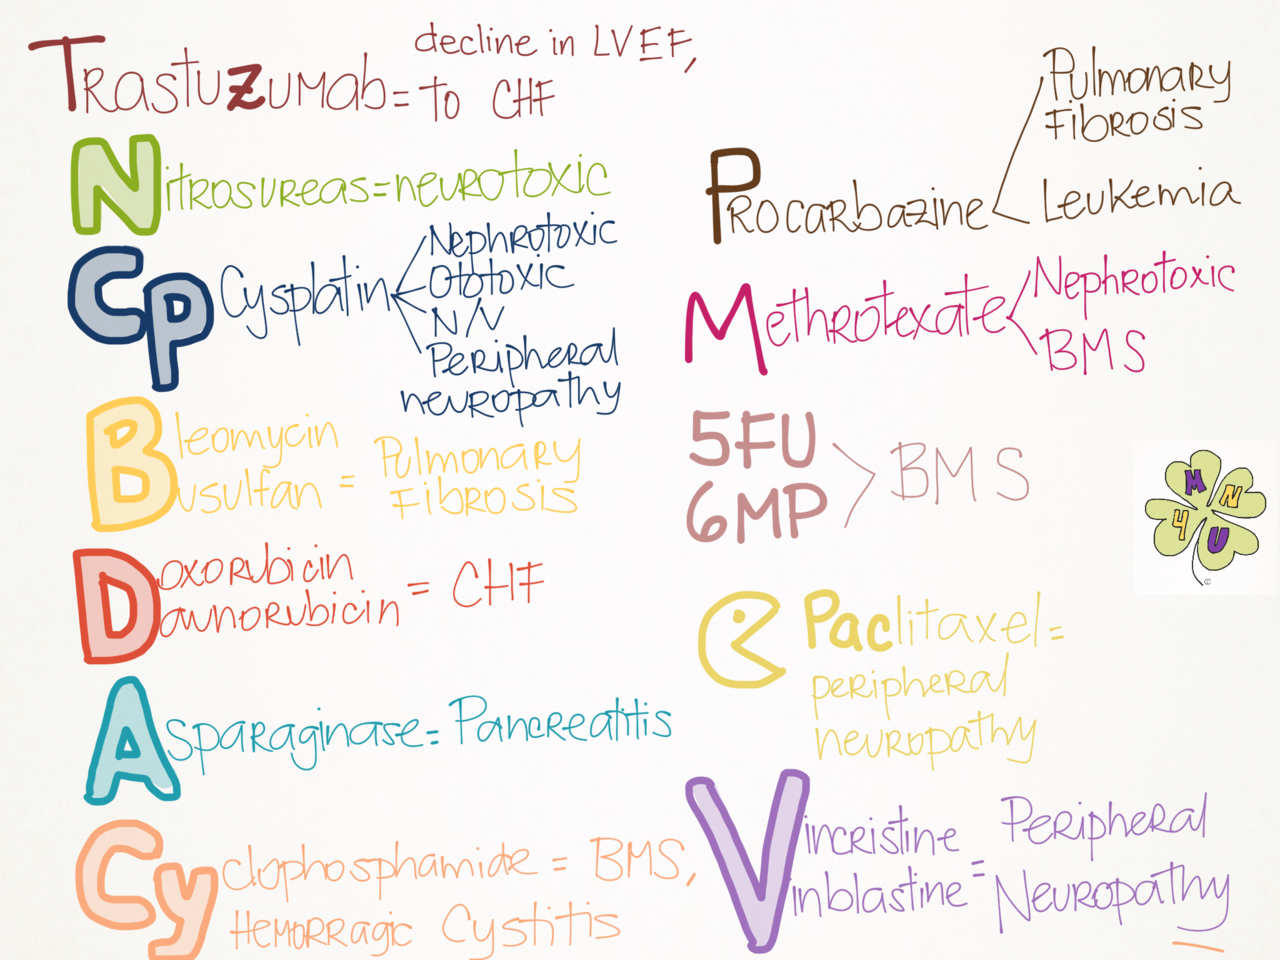 Trastuzumab = decline in LVEF,
to CHF
Nitrosureas = neurotoxic
Cp Cysplatin
Nephrotoxic
Ototoxic
N/V
Peripheral
neuropathy
Bleomycin
Busulfan = Pulmonary
Fibrosis
Doxorubicin
Daunorubicin = CHF
Asparaginase = Pancreatitis
Cyclophosphamide = BMS,
Hemorragic Cystitis
Procarbazine
Pulmonary
Fibrosis
Leukemia
Methrotexate
Nephrotoxic
BMS
5FU
6MP > BMS
Paclitaxel =
peripheral
neuropathy
Vincristine
Vinblastine = Peripheral
Neuropathy
M N
4 U
©